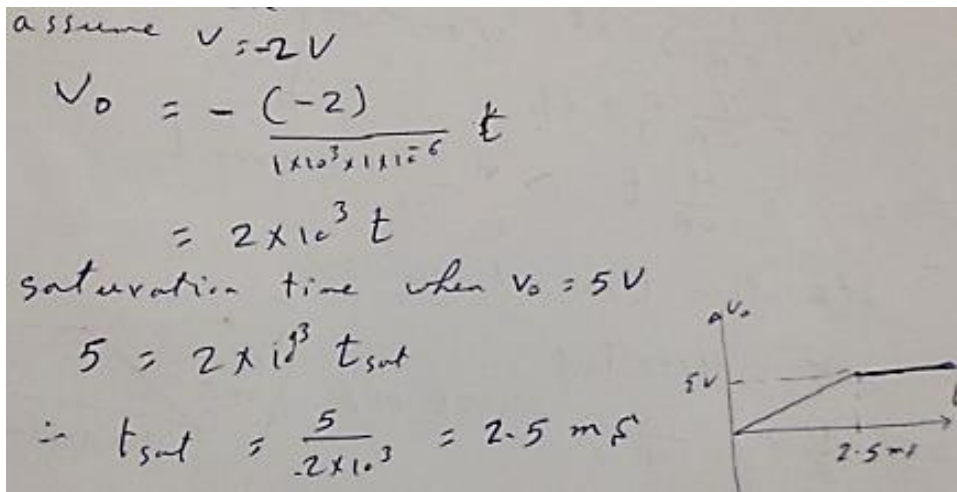 assume V = -2 V
Vo = - (-2) / (1×10³×1×10⁻⁶) t
= 2×10³ t
saturation time when Vo = 5 V
5 = 2×10³ tsat
∴ tsat = 5 / (2×10³) = 2.5 mS
Vo
5V
t
2.5ms